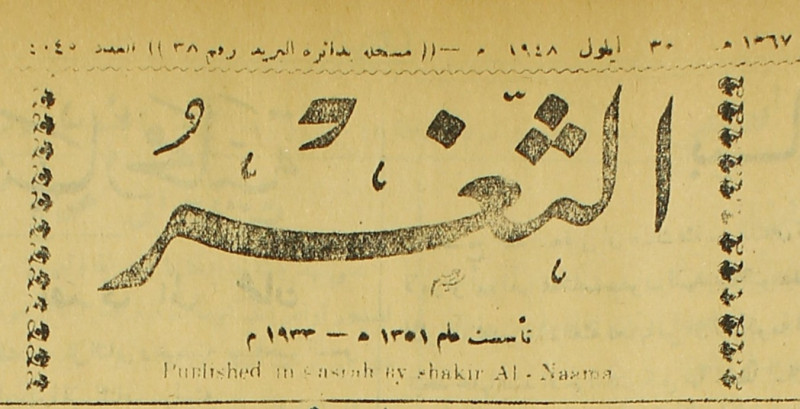 ١٣٦٧ ه ٣٠ ايلول ١٩٤٨ م —(( مسجله بدائره البريد رقم ٣٨ )) العدد
الثغر
تأسست عام ١٣٥١ ه — ١٩٣٣ م
Published in Basrah by shakir Al - Naama